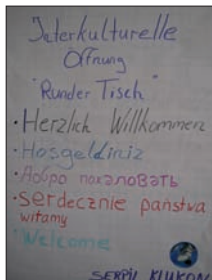 Interkulturelle
Öffnung
"Runder Tisch"
• Herzlich Willkommen
• Hosgeldiniz
• Добро пожаловать
• serdecznie państwa
witamy
• Welcome
SERPIL KLUKON